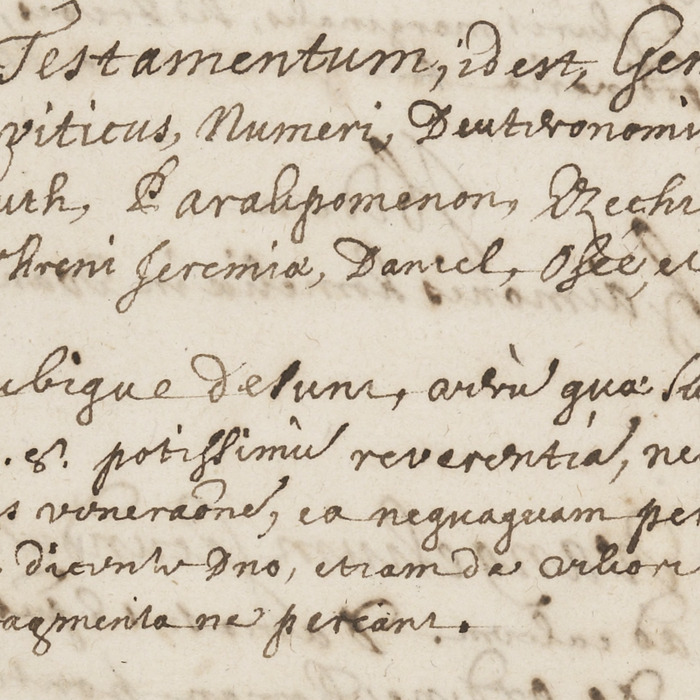 Testamentum, id est, Gen
viticus, Numeri, Deuteronomiu
uth, Paralipomenon, Ezechi
Threni Jeremiæ, Daniel, Osee, et
ubique desunt, quæ su
. S. potissimù reverentiá, ne
s veneraōne, ea nequaquam per
dicente Dno, etiam de
agmenta ne pereant.